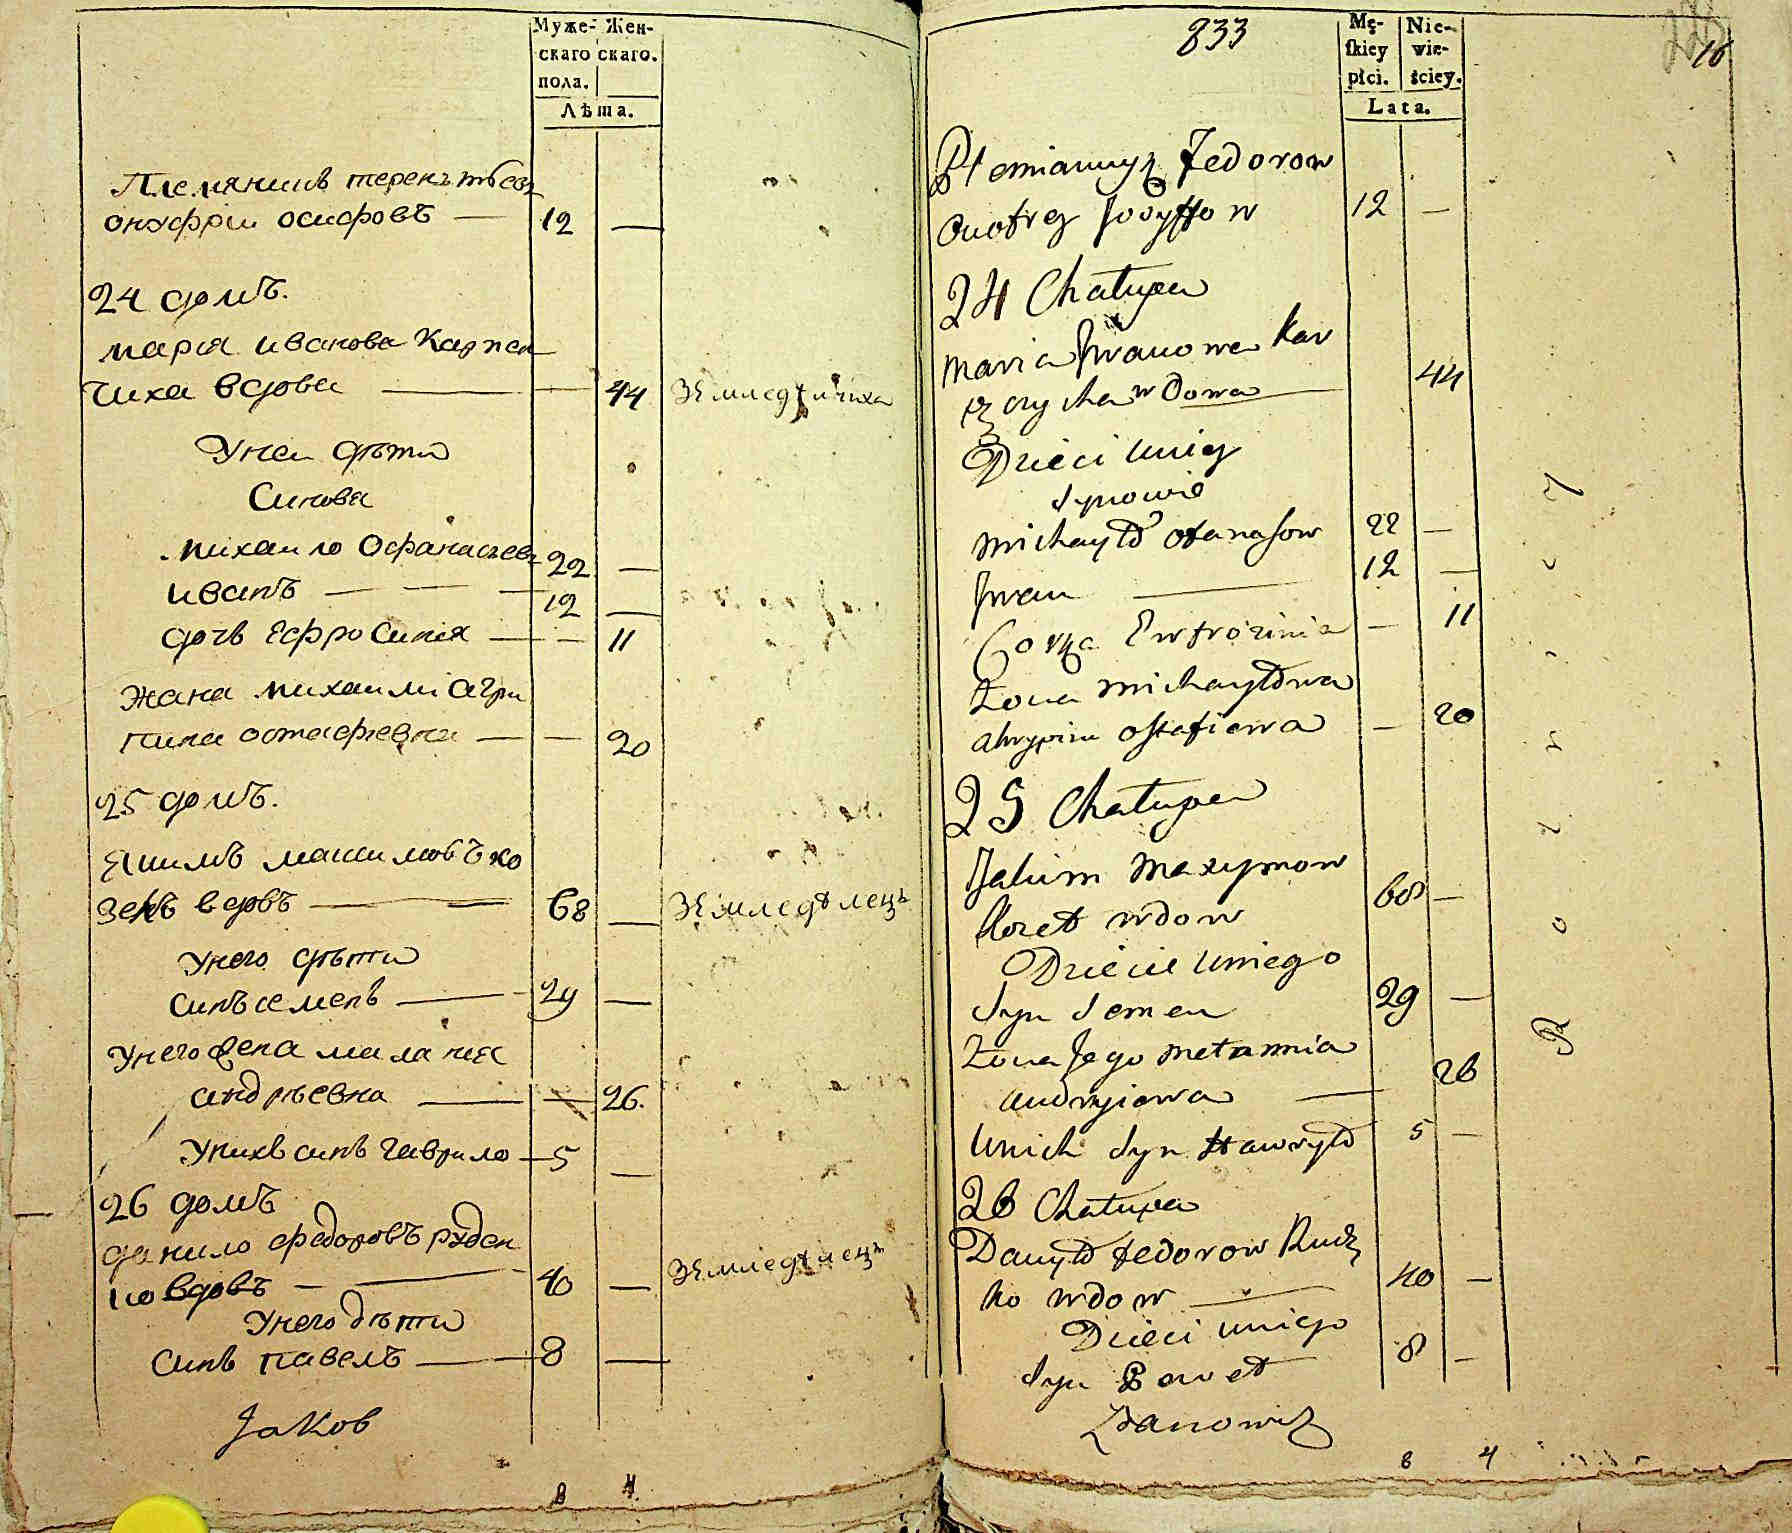 Муже- Жен-
скаго скаго.
пола.
Лѣта.
Племянникъ терентъевъ
онуфрій осифовъ — 12 —
24 домъ.
мария иванова Карпен
чиха вдова — — 44 Земледѣлчиха
Унеи дѣти
Синовя
михаило Офанасьевъ 22 —
иванъ — — — 12 —
дочь Ефросиния — — 11
Жана михаили агри
пина остафиевна — — 20
25 домъ.
Якимъ максимовъ ко
зелъ вдовъ — 68 — Земледѣлецъ
Унего дѣти
синъ семенъ — 29 —
Унего жена мелания
андрѣевна — — 26.
Унихъ синъ гаврило — 5 —
26 домъ
данило федоровъ руден
ко вдовъ — 40 — Земледѣлецъ
Унего дѣти
синъ павелъ — 8 —
Jаков
8 4
833
16
Mę- Nie-
skiey wie-
płci. ściey.
Lata.
Plemiannyk Fedorow
Onofrey Jozyffow 12 —
24 Chałupa
Maria Iwanowa Kar
czycha wdowa — 44
Dzieci uniey
Synowie
Michayło Ofanasow 22 —
Iwan — 12 —
Corka Ewfrozinia — 11
Żona Michayłowa
ahrypina Ostafiowa — 20
25 Chałupa
Jakim Maxymow
Kozeł wdow 68 —
Dziecie uniego
Syn Semen 29 —
Żona Jego Mełannia
andryiowa — 26
Unich Syn Hawryło 5 —
26 Chałupa
Danyło Fedorow Rud
ko wdow — 40 —
Dzieci uniego
Syn Paweł 8 —
Zdanowicz
8 4
R o l n i c y